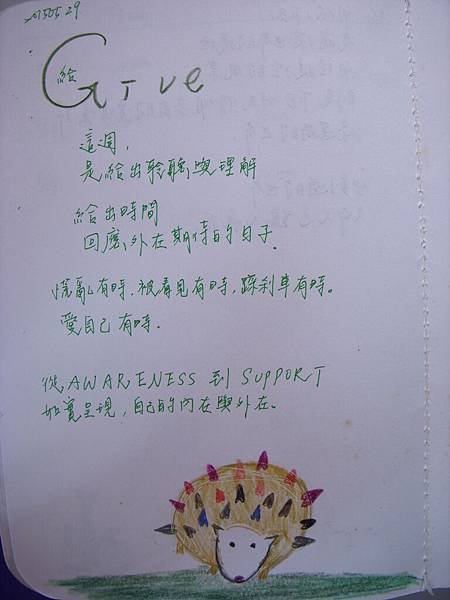 給
Give
這週,
是給出聆聽與理解
給出時間
回應外在期待的日子.
慌亂有時,被看見有時,踩剎車有時。
愛自己有時.
從AWARENESS 到 SUPPORT
如實呈現,自己的內在與外在.